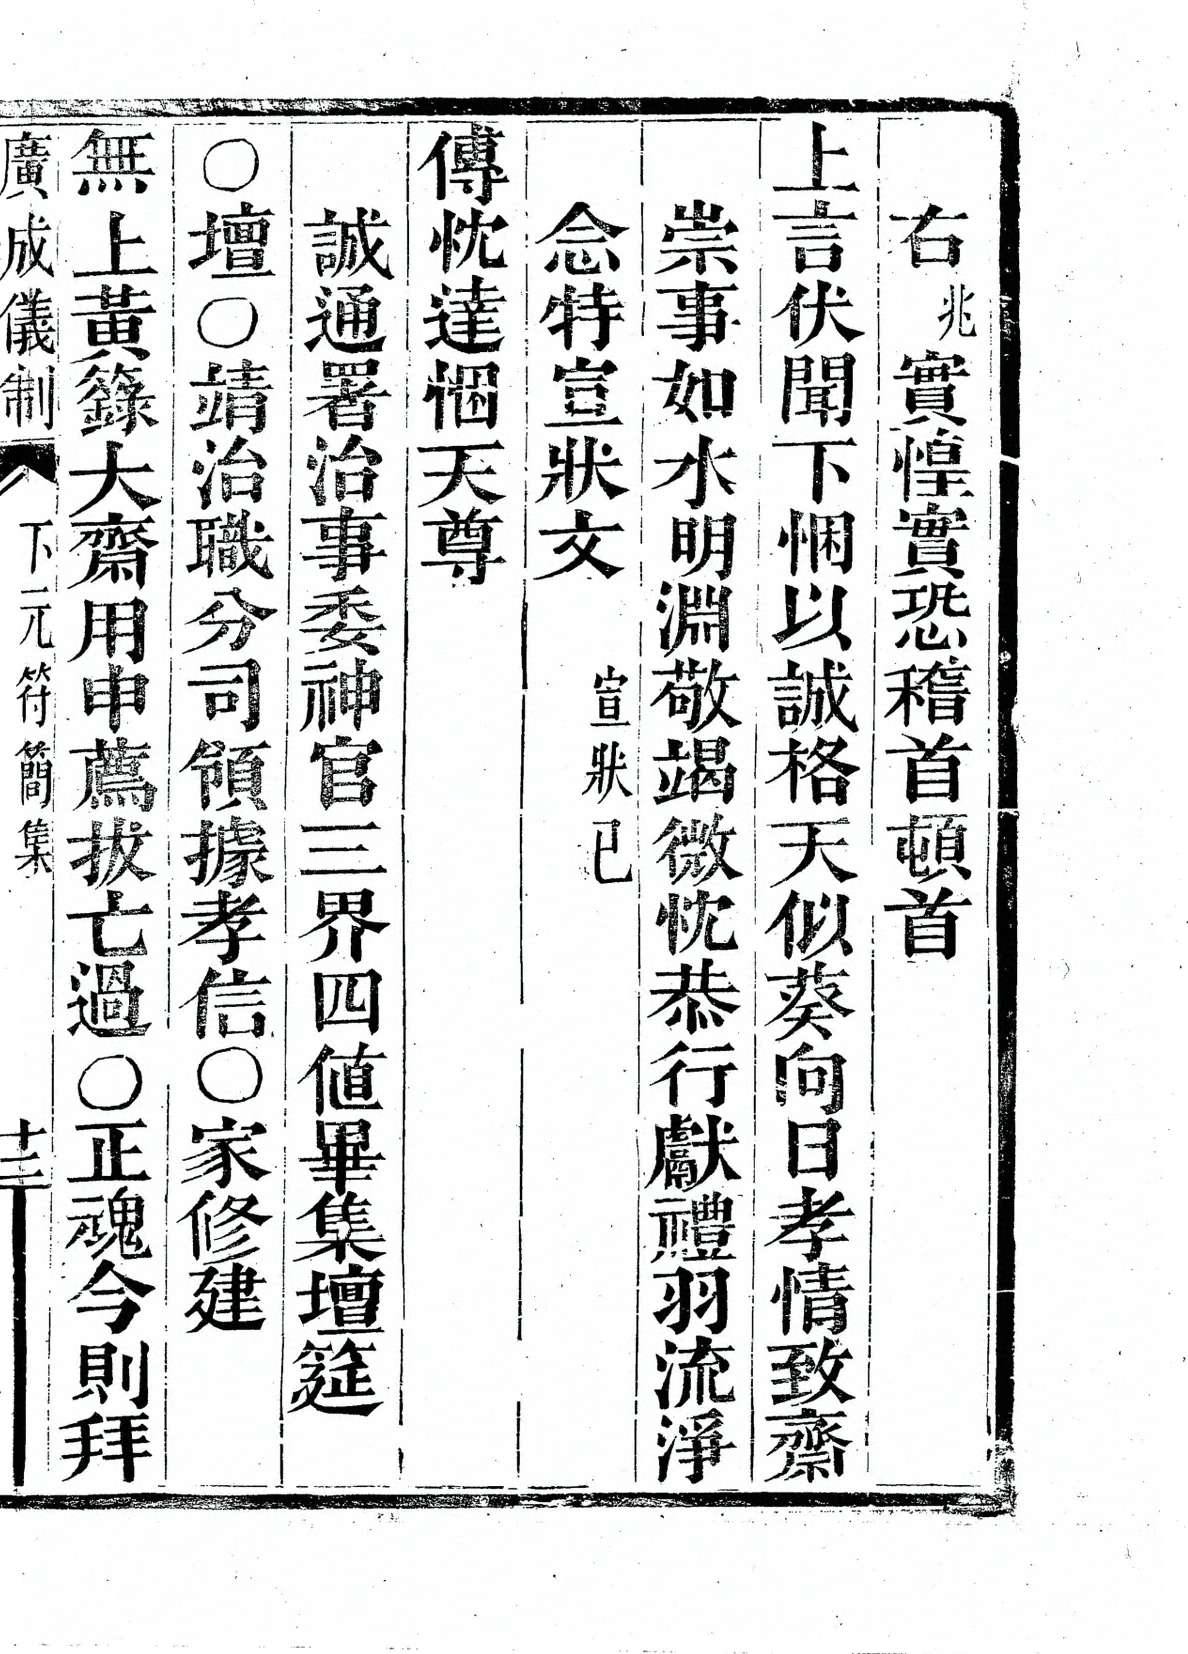 右兆實惶實恐稽首頓首
上言伏聞下悃以誠格天似葵向日孝情致齋
崇事如水明淵敬竭微忱恭行獻禮羽流淨
念特宣狀文宣狀已
傳忱達悃天尊
誠通署治事委神官三界四値畢集壇筵
○壇○靖治職分司領據孝信○家修建
無上黃籙大齋用申薦拔亡過○正魂今則拜
廣成儀制下元符簡集十三